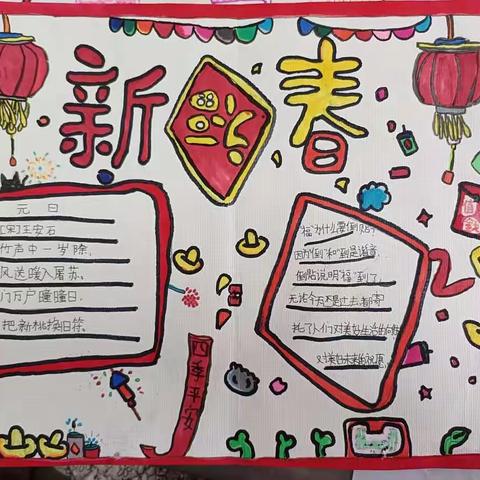 新福春
元日
[宋]王安石
竹声中一岁除,
风送暖入屠苏。
门万户曈曈日,
把新桃换旧符。
"福"为什么要倒贴?
因为"倒"和"到"是谐音,
倒贴说明"福"到了,
无论今天还是过去,都寄
托了人们对美好生活的向往
对美好未来的祝愿。
四季平安
2